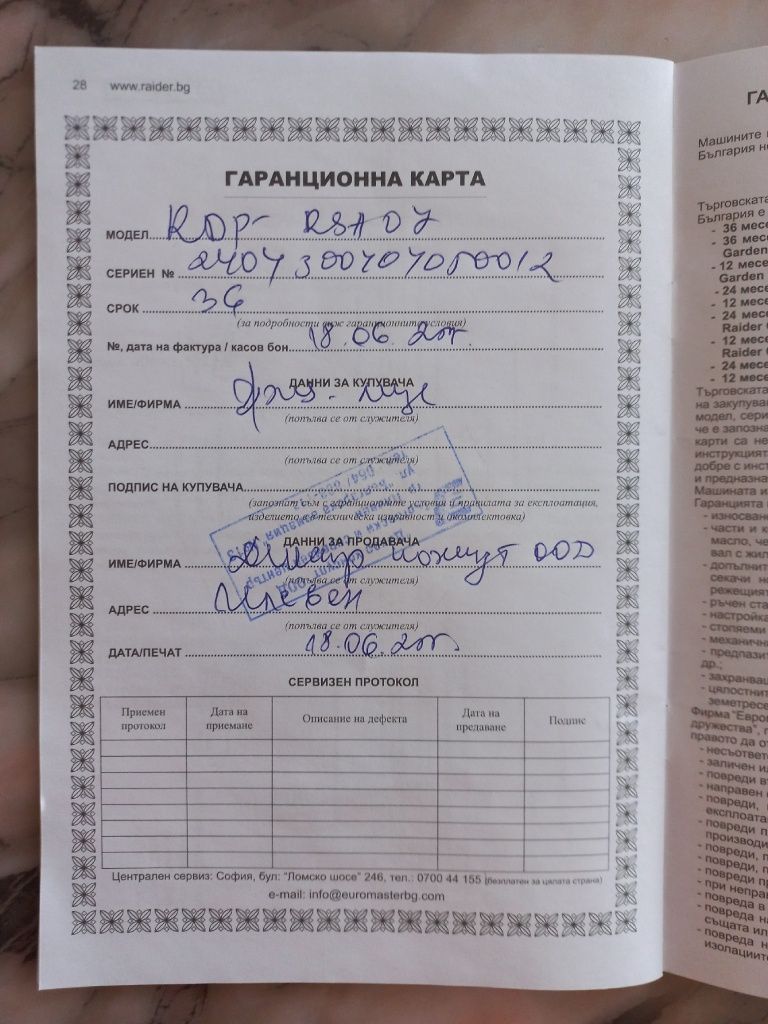 28 www.raider.bg
ГАРАНЦИОННА КАРТА
МОДЕЛ RDP- RSA07
СЕРИЕН № 2404300404050012
СРОК 36
(за подробности виж гаранционните условия)
№, дата на фактура / касов бон 18.06.
ДАННИ ЗА КУПУВАЧА
ИМЕ/ФИРМА физ. лице
(попълва се от служителя)
АДРЕС
(попълва се от служителя)
ПОДПИС НА КУПУВАЧА
(запознат съм с гаранционните условия и правилата за експлоатация,
изделието е в техническа изправност и окомплектовка)
ДАННИ ЗА ПРОДАВАЧА
ИМЕ/ФИРМА ООД
(попълва се от служителя)
АДРЕС Плевен
(попълва се от служителя)
ДАТА/ПЕЧАТ 18.06.
СЕРВИЗЕН ПРОТОКОЛ
Приемен протокол Дата на приемане Описание на дефекта Дата на предаване Подпис
Централен сервиз: София, бул: "Ломско шосе" 246, тел.: 0700 44 155 (безплатен за цялата страна)
e-mail: info@euromasterbg.com
ГА
Машините
България
Търговската
България е
- 36 месе
- 36 месе
Garden
- 12 месе
Garden
- 24 месе
- 12 месе
- 24 месе
Raider
- 12 месе
Raider
- 24 месе
- 12 месе
Търговската
на закупуван
модел, сери
че е запозна
карти са не
инструкцият
добре с инст
и предназна
Машината из
Гаранцията
- износване
- части и к
масло, че
вал с жил
- допълнит
секачи но
режещият
- ръчен ста
- настройка
- стопяеми
- механичн
- предпазит
др.;
- захранващ
- цялостнит
земетресе
Фирма "Евро
дружества", г
правото да от
- несъответ
- заличен ил
- повреди въ
- направен
- повреди,
експлоата
- повреди п
производи
- повреди, п
- повреди, п
- повреди пр
- при неправ
- повреда в
- повреда на
същата ил
- повреда н
изолациит